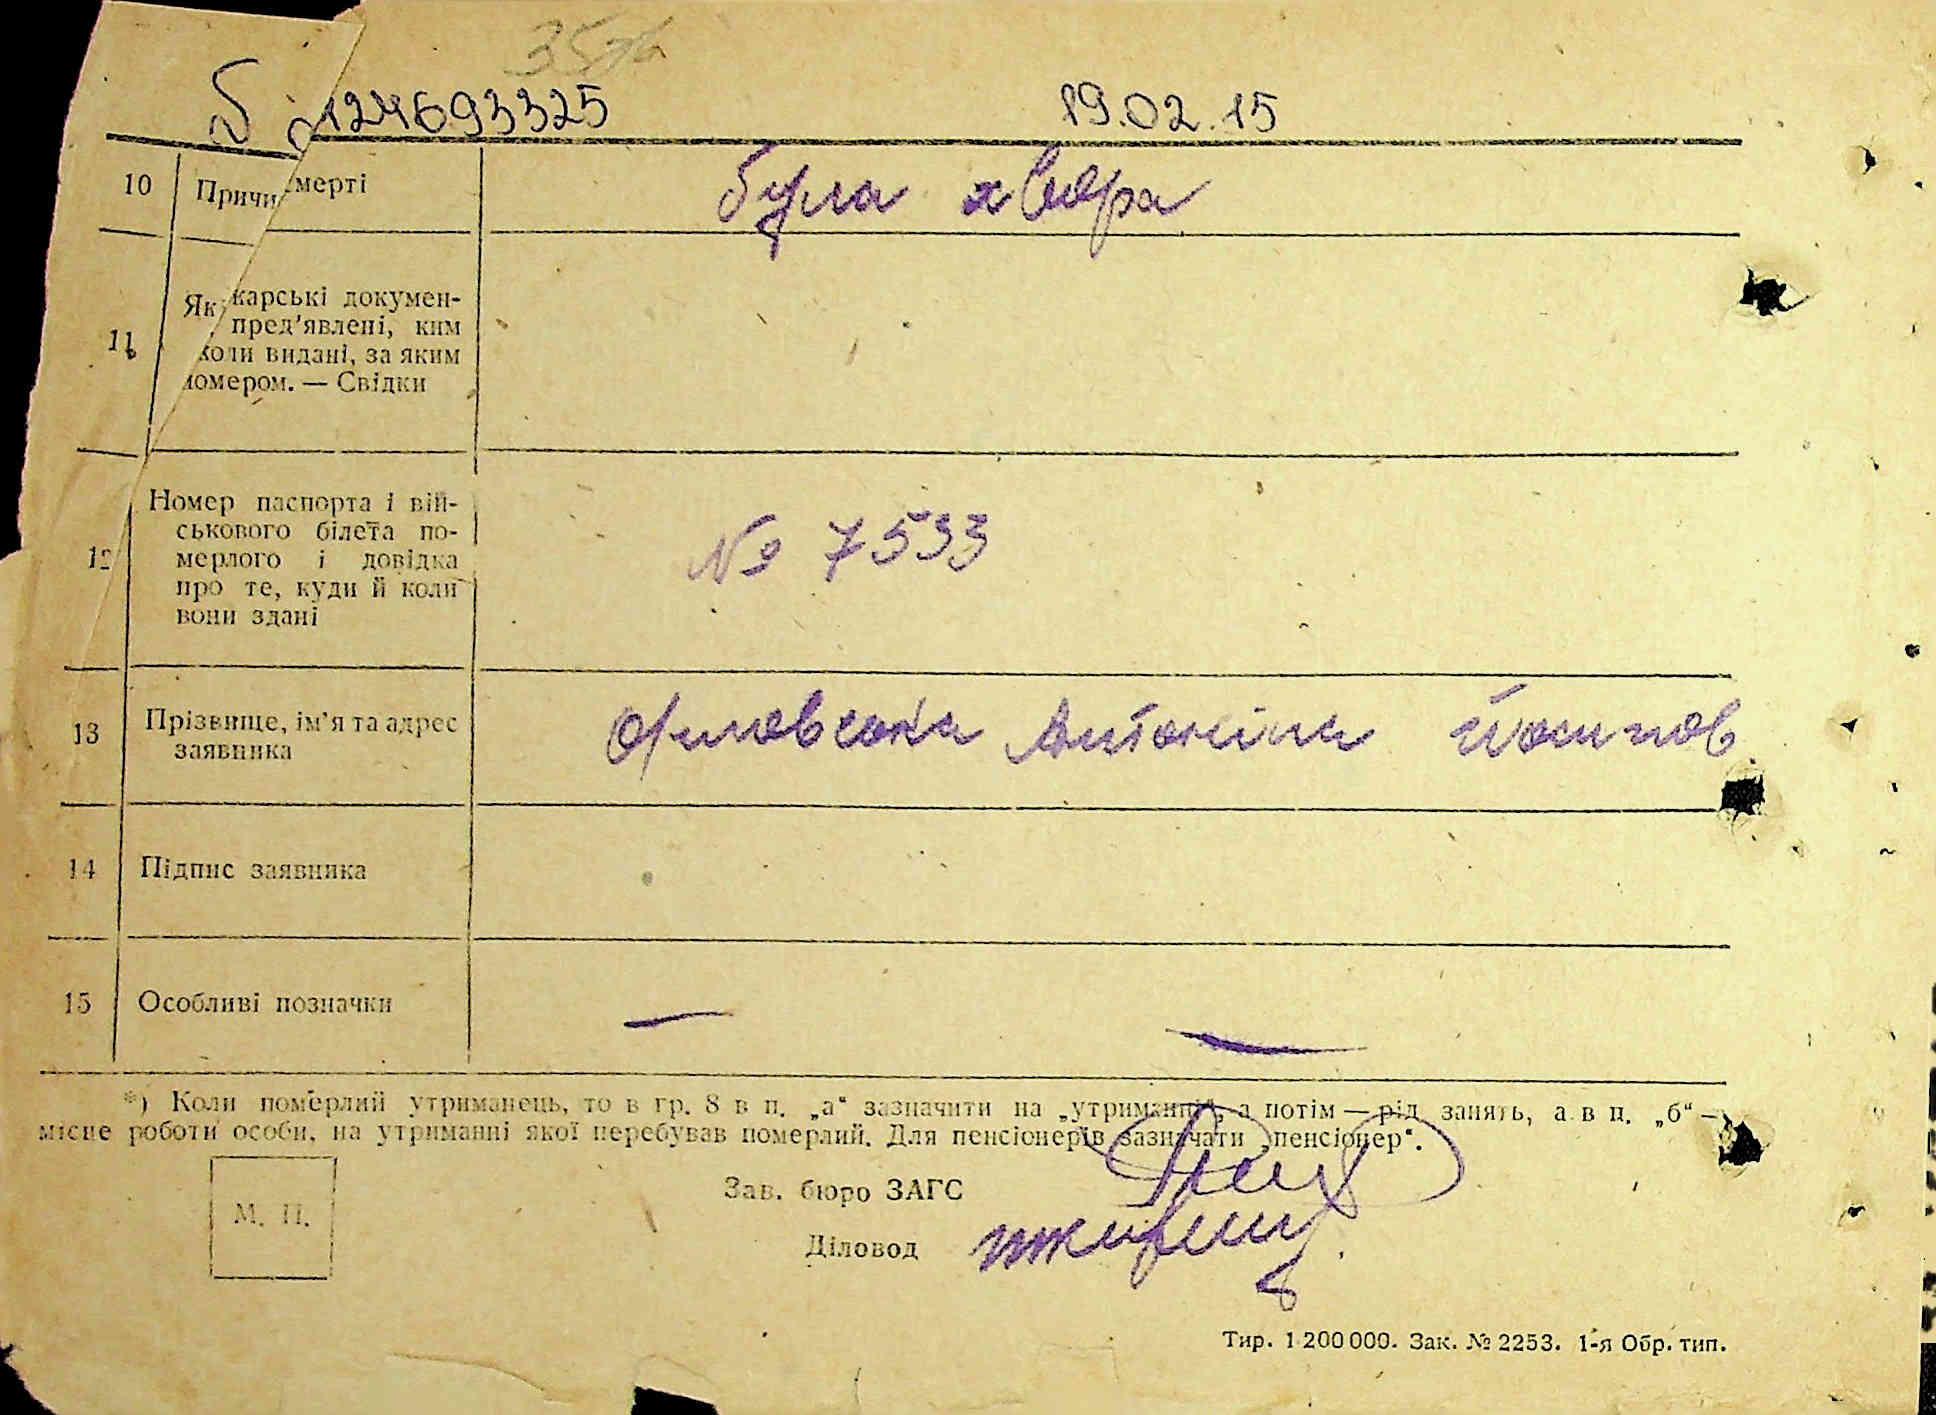 124693325 19.02.15
10 Причи смерті була хвора
11 Як карські докумен-
пред'явлені, ким
коли видані, за яким
номером. — Свідки
12 Номер паспорта і вій-
ськового білета по-
мерлого і довідка
про те, куди й коли
вони здані
№ 7533
13 Прізвище, ім'я та адрес
заявника
Антоніна Йосипов.
14 Підпис заявника
15 Особливі позначки — —
*) Коли померлий утриманець, то в гр. 8 в п. „а“ зазначити на „утриманні“, а потім — рід занять, а в п. „б“ —
місце роботи особи, на утриманні якої перебував померлий. Для пенсіонерів зазначати „пенсіонер“.
М. П.
Зав. бюро ЗАГС
Діловод
Тир. 1 200 000. Зак. № 2253. 1-я Обр. тип.